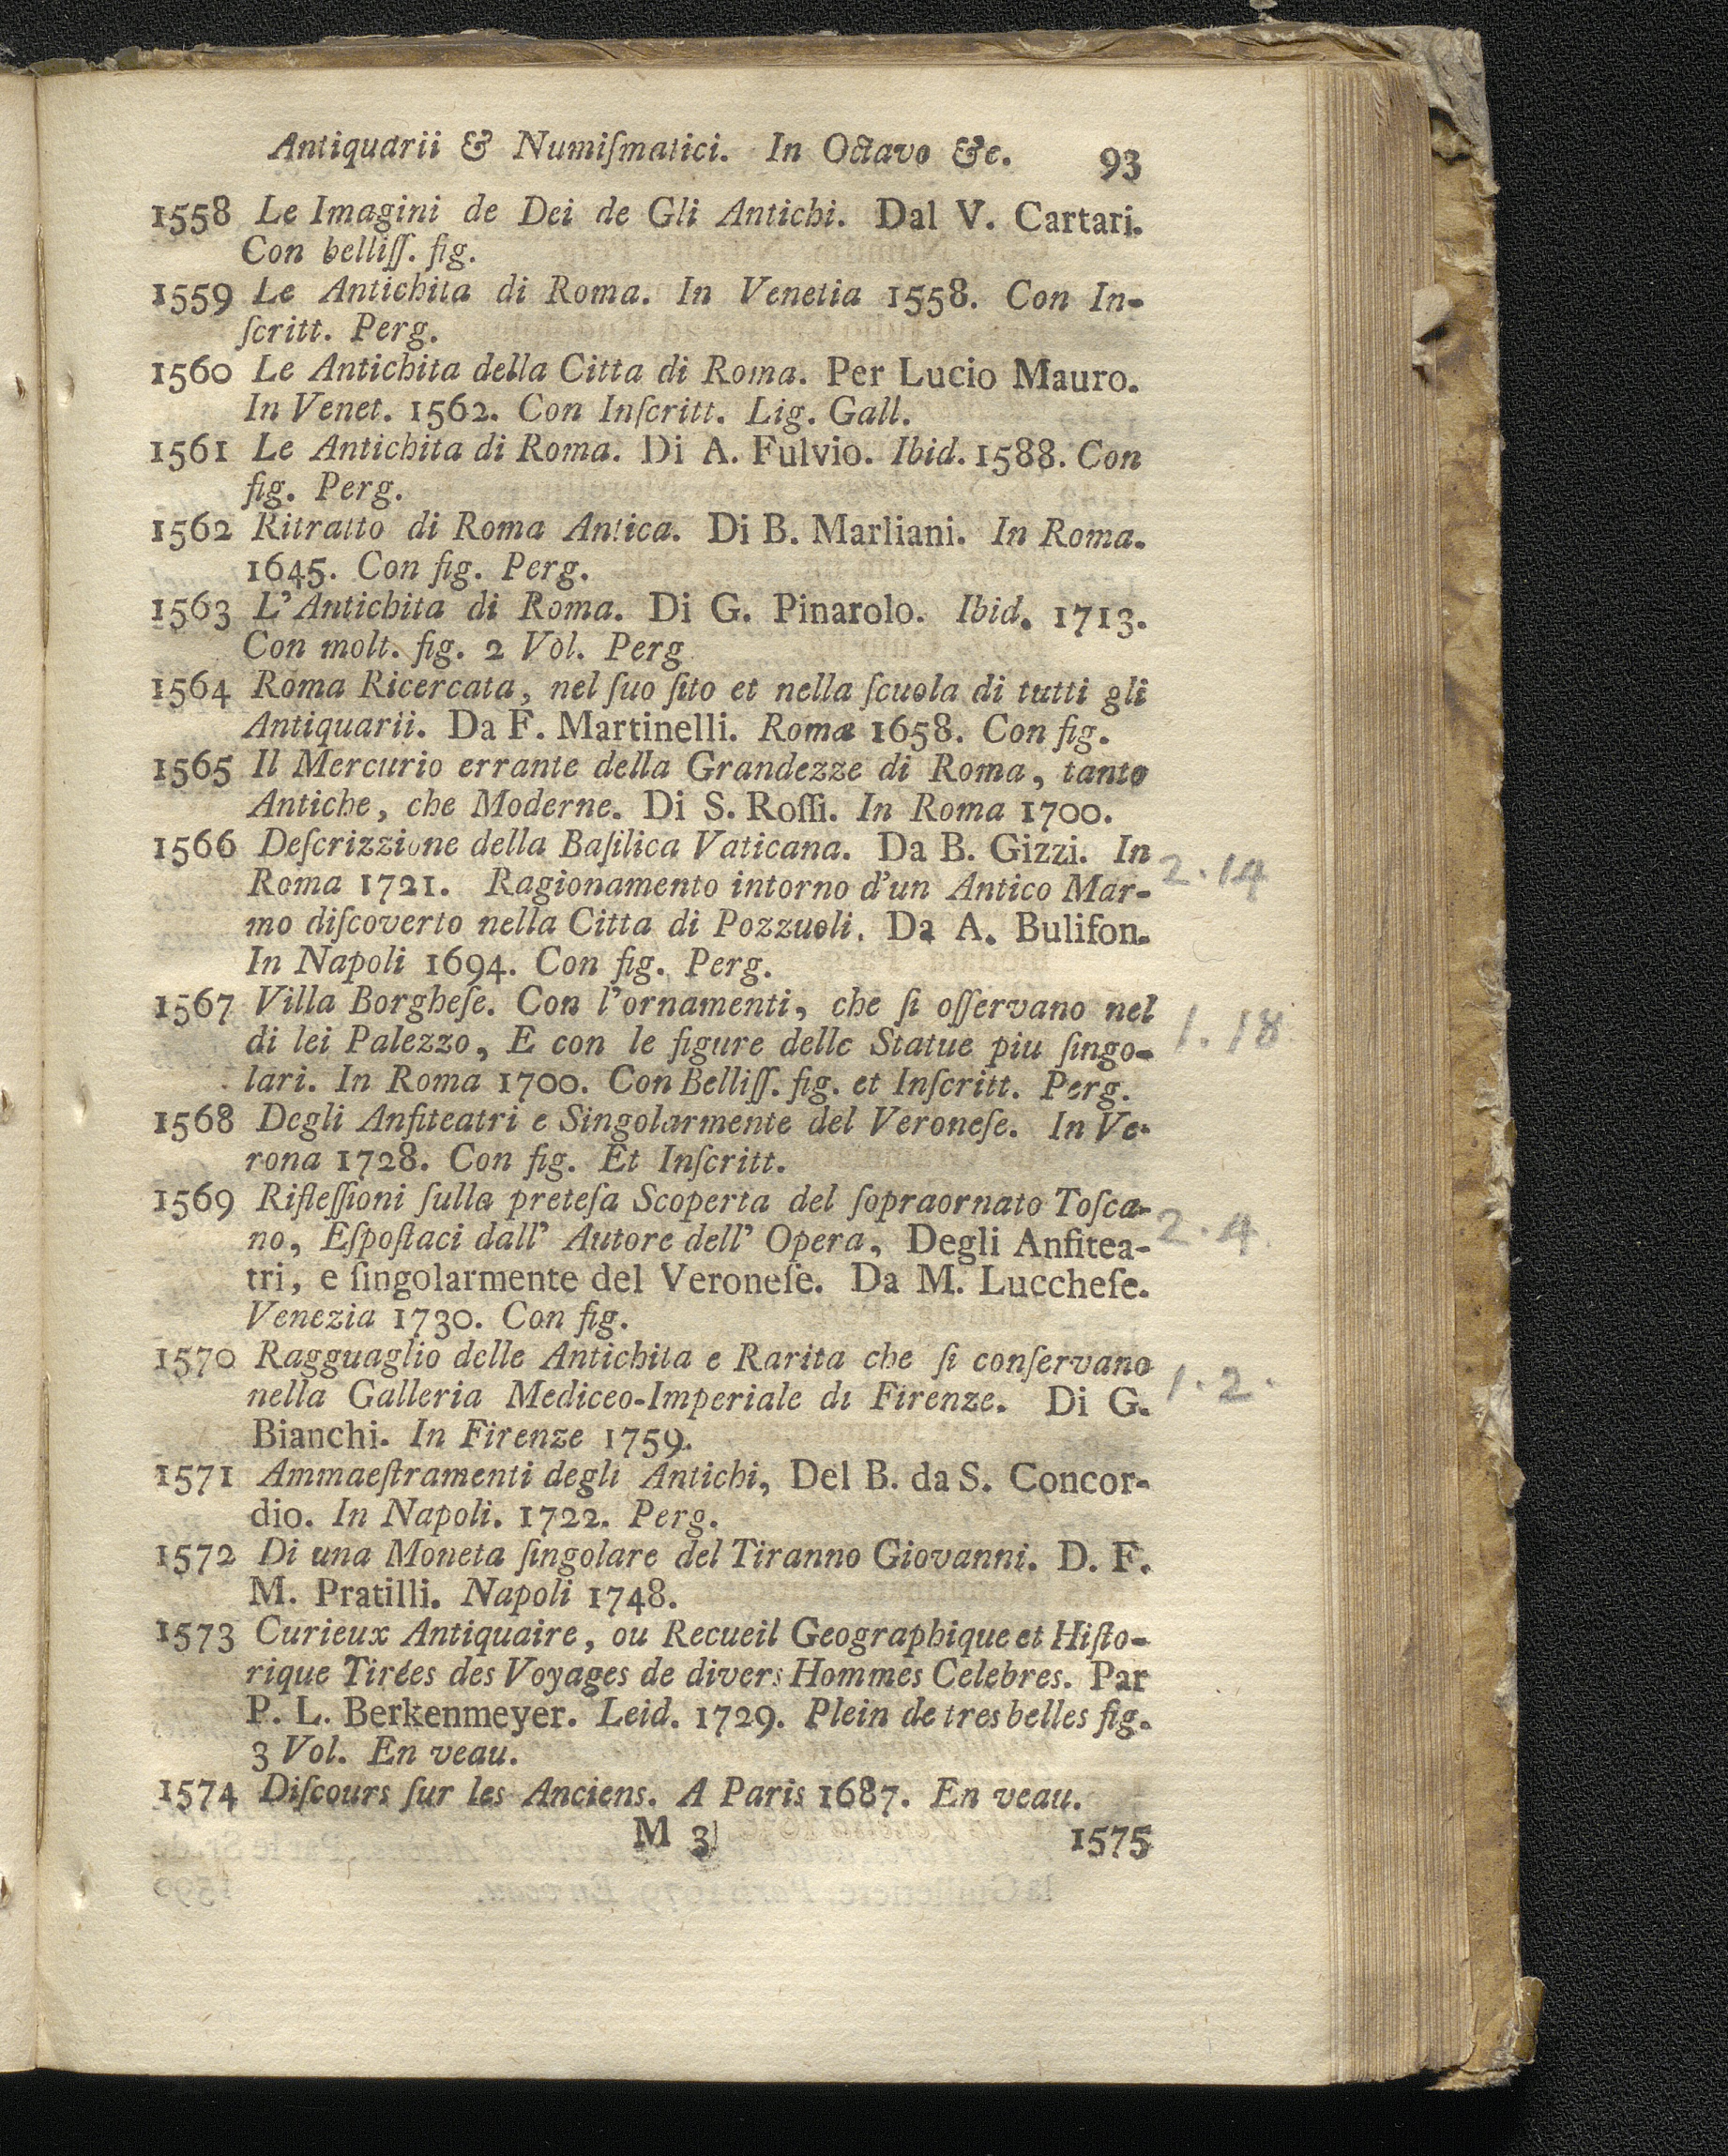 Antiquarii & Numiſmatici. In Octavo &c. 93
1558 Le Imagini de Dei de Gli Antichi. Dal V. Cartari.
Con belliſſ. fig.
1559 Le Antichita di Roma. In Venetia 1558. Con In-
ſcritt. Perg.
1560 Le Antichita della Citta di Roma. Per Lucio Mauro.
In Venet. 1562. Con Inſcritt. Lig. Gall.
1561 Le Antichita di Roma. Di A. Fulvio. Ibid. 1588. Con
fig. Perg.
1562 Ritratto di Roma Antica. Di B. Marliani. In Roma.
1645. Con fig. Perg.
1563 L'Antichita di Roma. Di G. Pinarolo. Ibid. 1713.
Con molt. fig. 2 Vol. Perg
1564 Roma Ricercata, nel ſuo ſito et nella ſcuola di tutti gli
Antiquarii. Da F. Martinelli. Romæ 1658. Con fig.
1565 Il Mercurio errante della Grandezze di Roma, tanto
Antiche, che Moderne. Di S. Roſſi. In Roma 1700.
1566 Deſcrizzione della Baſilica Vaticana. Da B. Gizzi. In
2.14
Roma 1721. Ragionamento intorno d'un Antico Mar-
mo diſcoverto nella Citta di Pozzuoli. Da A. Bulifon.
In Napoli 1694. Con fig. Perg.
1567 Villa Borgheſe. Con l'ornamenti, che ſi oſſervano nel
1.18
di lei Palezzo, E con le figure delle Statue piu ſingo-
lari. In Roma 1700. Con Belliſſ. fig. et Inſcritt. Perg.
1568 Degli Anfiteatri e Singolarmente del Veroneſe. In Ve-
rona 1728. Con fig. Et Inſcritt.
1569 Rifleſſioni ſulla preteſa Scoperta del ſopraornato Toſca-
2.4
no, Eſpoſtaci dall' Autore dell' Opera, Degli Anfitea-
tri, e ſingolarmente del Veroneſe. Da M. Luccheſe.
Venezia 1730. Con fig.
1570 Ragguaglio delle Antichita e Rarita che ſi conſervano
1.2.
nella Galleria Mediceo-Imperiale di Firenze. Di G.
Bianchi. In Firenze 1759.
1571 Ammaeſtramenti degli Antichi, Del B. da S. Concor-
dio. In Napoli. 1722. Perg.
1572 Di una Moneta ſingolare del Tiranno Giovanni. D. F.
M. Pratilli. Napoli 1748.
1573 Curieux Antiquaire, ou Recueil Geographique et Hiſto-
rique Tirées des Voyages de divers Hommes Celebres. Par
P. L. Berkenmeyer. Leid. 1729. Plein de tres belles fig.
3 Vol. En veau.
1574 Diſcours ſur les Anciens. A Paris 1687. En veau.
M 3 1575